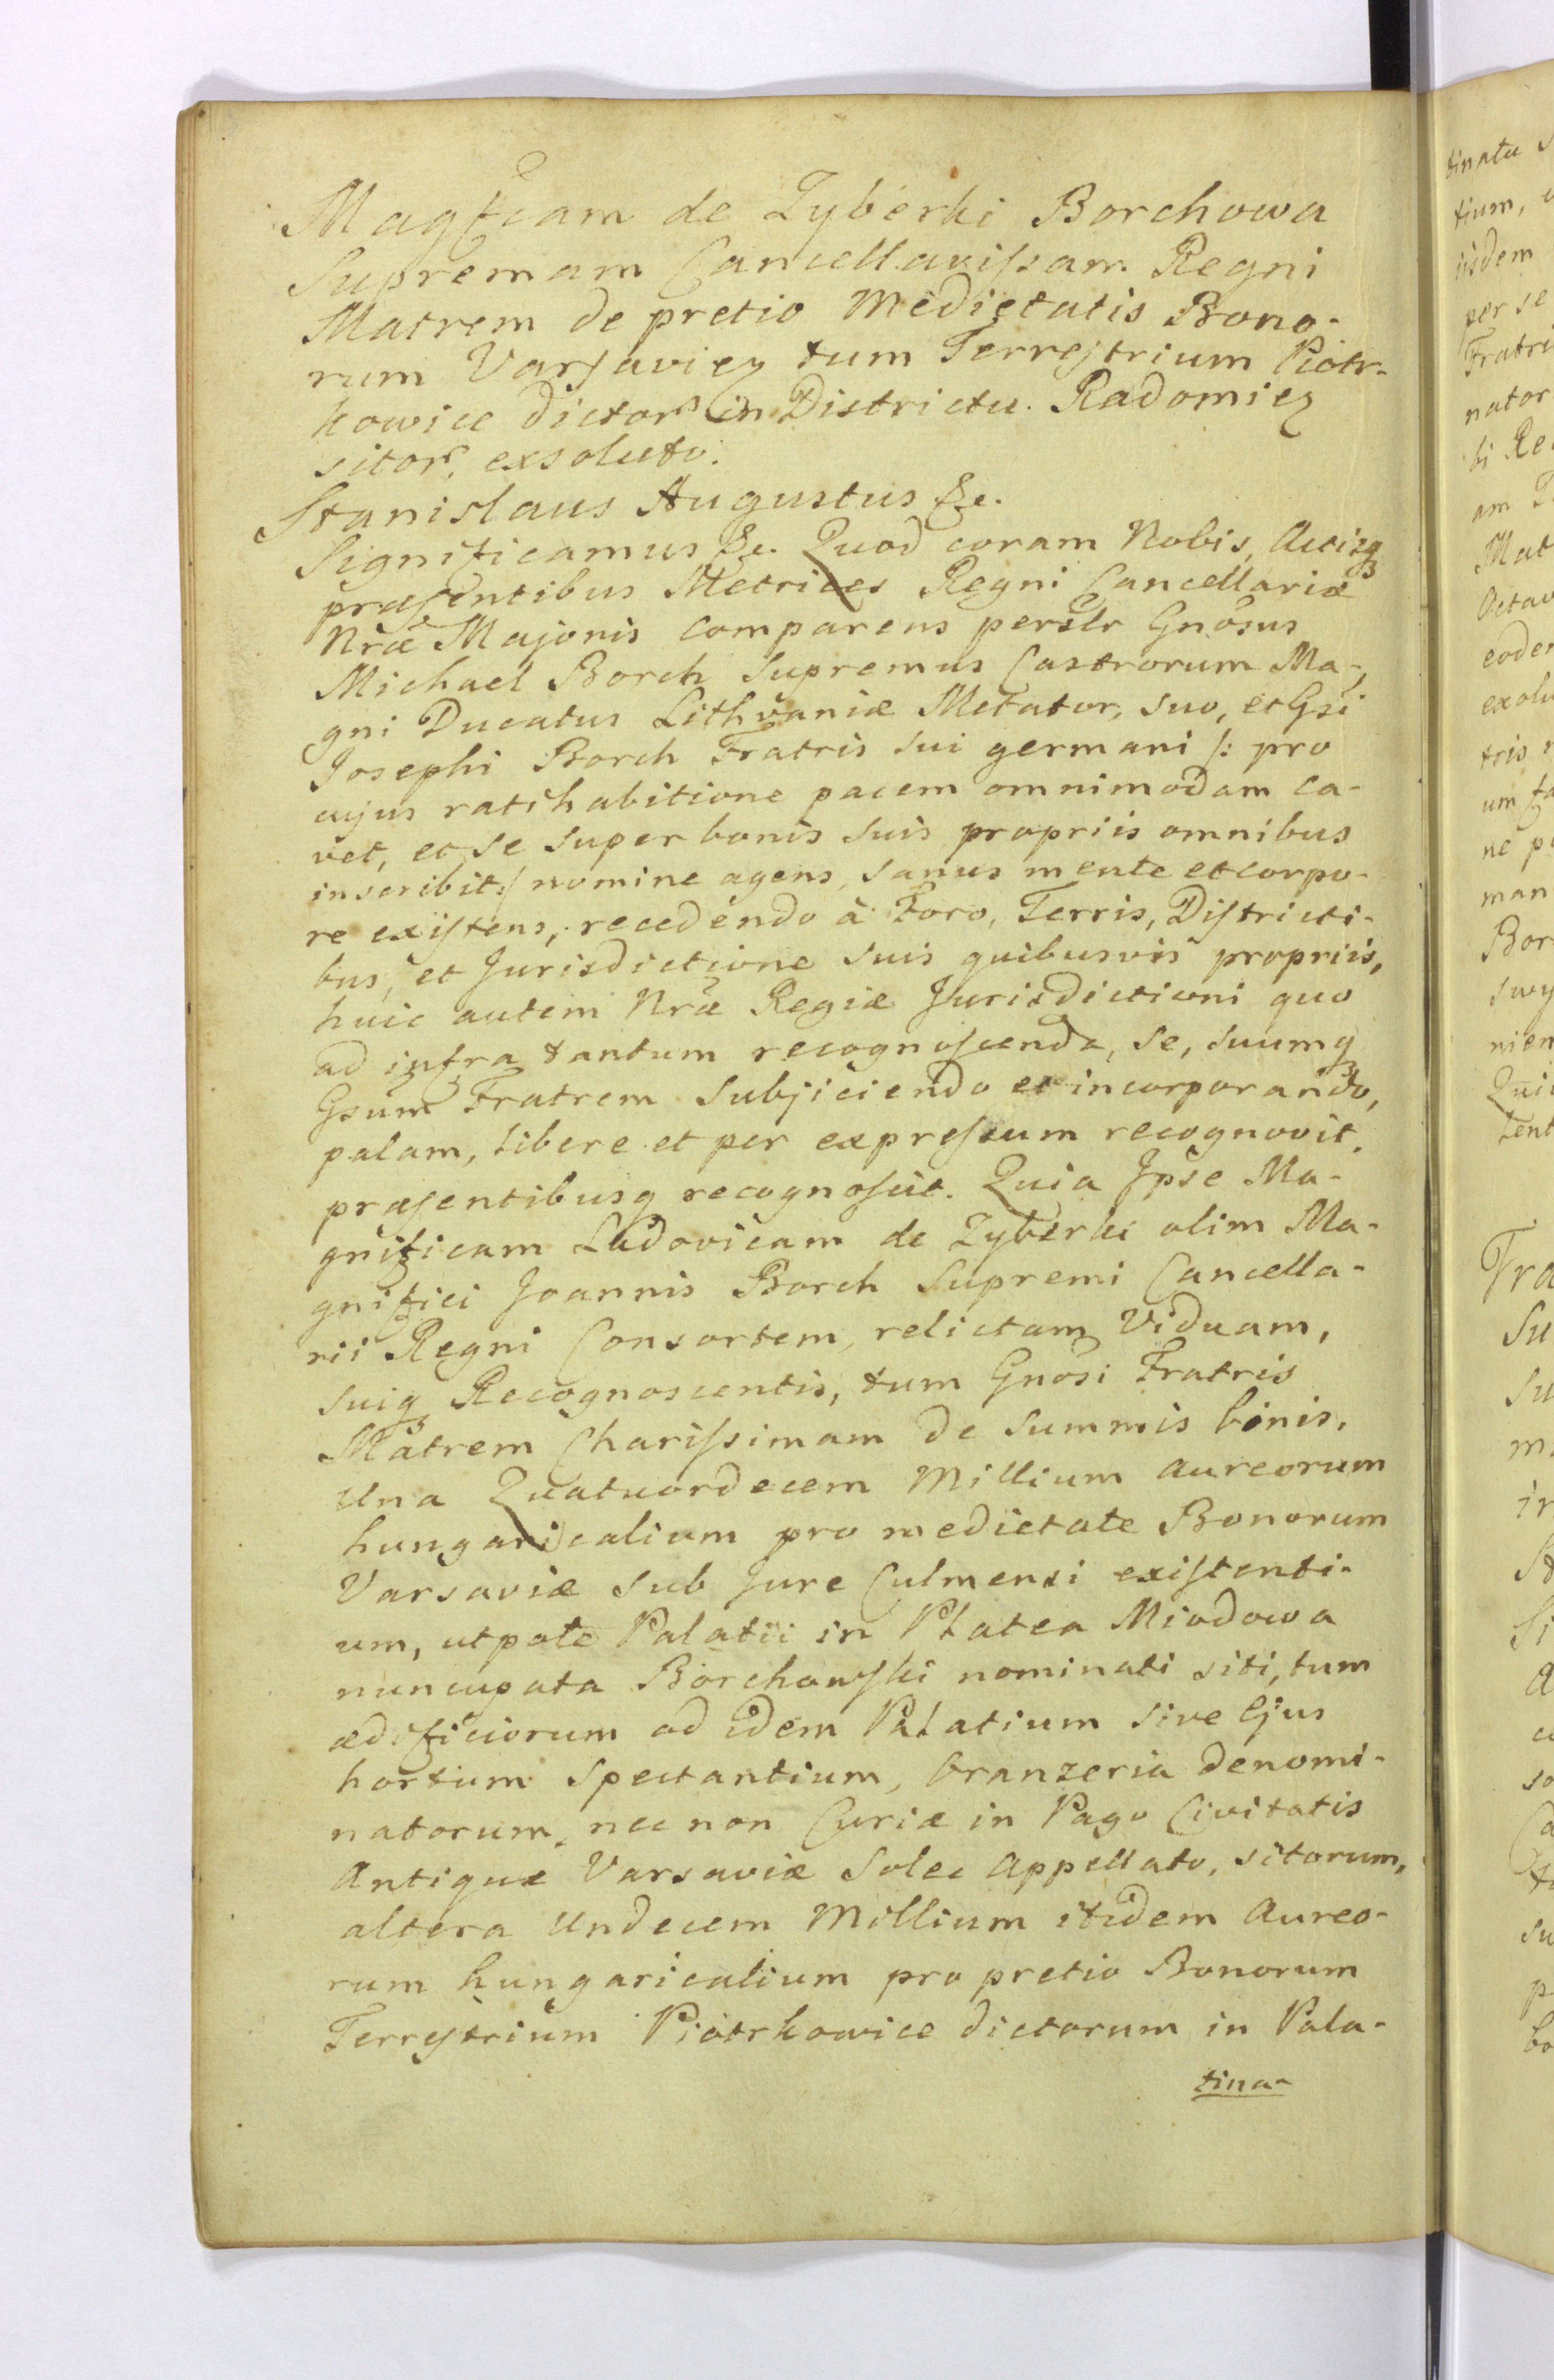 Magficam de Zyberki Borchowa
Supremam Cancellarissam Regni
Matrem de pretio Medietatis Bono-
rum Varsavien tum Terrestrium Piotr-
kowice dictor in Districtu Radomien
sitor, exsoluto.
Stanislaus Augustus &c.
Significamus &c. Quod coram Nobis, Actisq
præsentibus Metrices Regni Cancellariæ
Nræ Majoris comparens perslr Gnosus
Michael Borch Supremus Castrorum Ma-
gni Ducatus Lithvaniæ Metator, suo, et Gsi
Josephi Borch Fratris sui germani /: pro
cujus ratihabitione pacem omnimodam ca-
vet, et se super bonis suis propriis omnibus
inscribit :/ nomine agens, sanus mente et corpo-
re existens, recedendo à Foro, Terris, Districti-
bus, et Jurisdictione suis quibusvis propriis,
huic autem Nræ Regiæ Jurisdictioni quo
ad infra tantum recognoscenda, se, suumq
Gsum Fratrem subjiciendo et incorporando,
palam, libere et per expressum recognovit,
præsentibusq recognoscit. Quia Ipse Ma-
gnificam Ludovicam de Zyberki olim Ma-
gnifici Joannis Borch Supremi Cancella-
rii Regni Consortem, relictam Viduam,
suiq Recognoscentis, tum Gnosi Fratris
Matrem Charissimam de summis binis,
una Quatuordecem Millium aureorum
hungaricalium pro medietate Bonorum
Varsaviæ sub Jure Culmensi existenti-
um, utpote Palatii in Platea Miodowa
nuncupata Borchowski nominati siti, tum
ædificiorum ad idem Palatium sive Ejus
hortum spectantium, Oranzeria denomi-
natorum, nec non Curiæ in Pago Civitatis
Antiquæ Varsaviæ Solec appellato, sitorum,
altera Undecem Millium itidem Aureo-
rum hungaricalium pro pretio Bonorum
Terrestrium Piotrkowice dictorum in Pala-
tina-